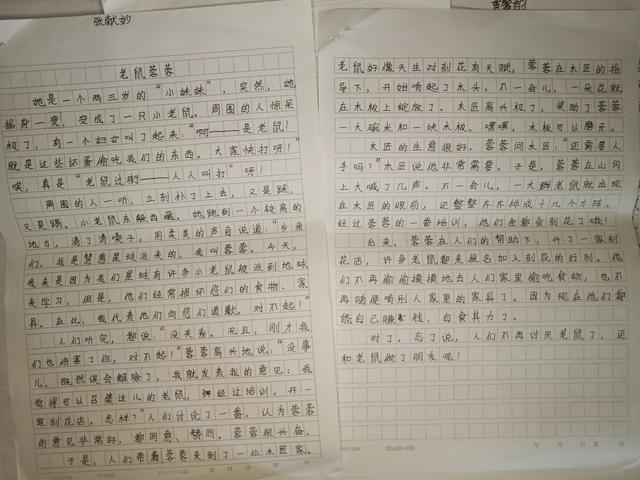 张献妙
老鼠蓉蓉
她是一个两三岁的“小妹妹”，突然，她
摇身一变，变成了一只小老鼠。周围的人惊呆
极了，有一个妇女叫了起来：“啊——是老鼠！
就是这些坏蛋偷吃我们的东西，大家快打呀！”
唉，真是“老鼠过街——人人叫打”呀！
周围的人一听，立刻扑了上去，又是踩，
又是踢。小老鼠东躲西藏，她跑到一个较高的
地方，清了清嗓子，用柔美的声自说道：“乡亲
们，我是慧鹿星球派来的，我叫蓉蓉。今天，
我来是因为我们星球有许多小老鼠被派到地球
来学习，但是，他们经常损坏您们的食物、家
具。在此，我代表他们向您们道歉，对不起！”
人们听完，都说：“没关系。况且，刚才我
们也伤害了你，对不起！”蓉蓉高兴地说：“没事
儿，既然误会解除了，我就发表我的意见：我
可以召集这儿的老鼠，经过培训，开一
家刻花店，怎样？”人们讨论了一番，认为蓉蓉
的意见非常好，都同意、赞同。蓉蓉很兴奋。
于是，人们带着蓉蓉来到了一位木匠家。
黄馨
老鼠好像天生对刻花有天赋，蓉蓉在木匠的指
导下，开始啃起了木头，不一会儿，一朵花就
在木板上绽放了。木匠高兴极了，奖励了蓉蓉
一大碗米和一块木板。嘿嘿，木板可以磨牙。
木匠的生意很好，蓉蓉问木匠：“还需要人
手吗？”木匠说他非常需要。于是，蓉蓉在山冈
上大喊了几声。不一会儿，一大群老鼠就出现
在木匠的眼前，还整整齐齐排成十几个方阵。
经过蓉蓉的一番培训，他们全都会刻花了哦！
后来，蓉蓉在人们的帮助下，开了一家刻
花店，许多老鼠都来报名加入刻花的行列。他
们不再偷偷摸摸地去人们家里偷吃食物，也不
再随便啃别人家里的家具了。因为现在他们都
能自己赚钱，自食其力了。
对了，忘了说，人们不再讨厌老鼠了，还
和老鼠做了朋友呢！
20×20=400
年 月 日 第 页